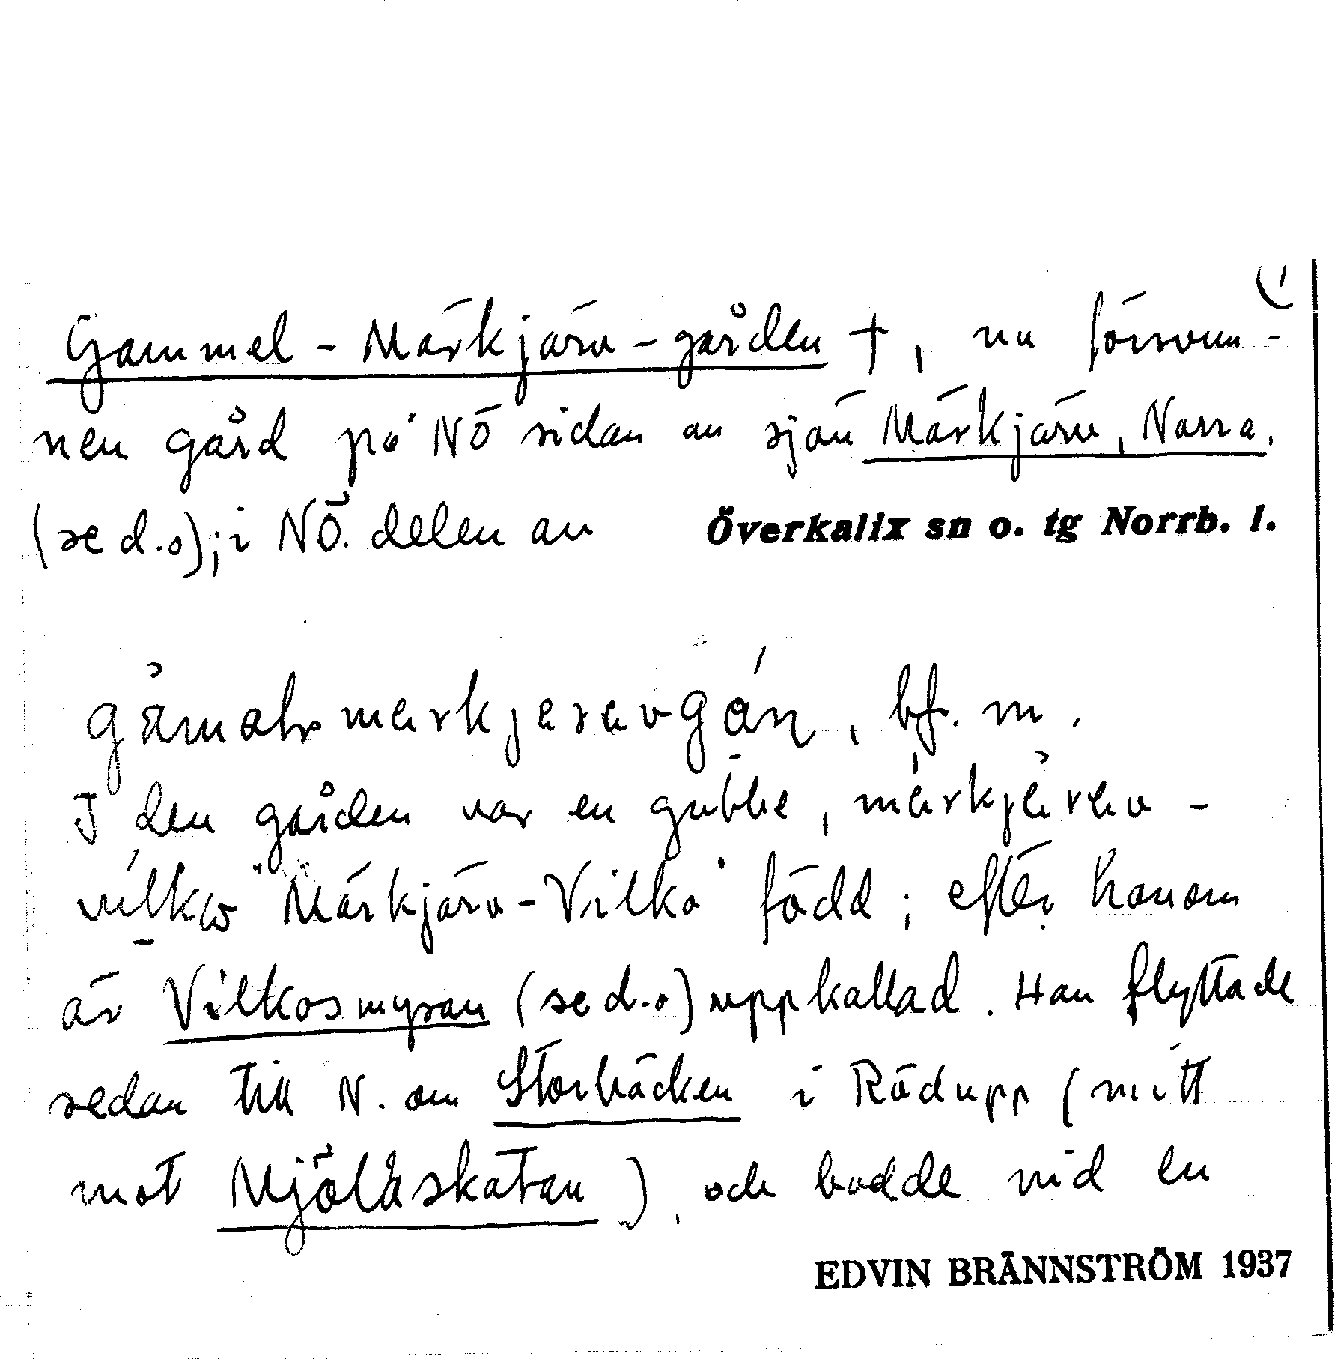 (1
Gammel-Märkjärv-gården †, nu försvun-
nen gård på NÖ sidan av sjön Märkjärv, Norra,
(se d.o); i NÖ. delen av Överkalix sn o. tg Norrb. l.
bf. m.
I den gården var en gubbe, märkjärav-
vilkω "Märkjärv-Vilko" född; efter honom
är Vilkosmyran (se d.o) uppkallad. Han flyttade
sedan till N. om Storbäcken i Rödupp (mitt
mot Mjölåskatan), och bodde vid en
EDVIN BRÄNNSTRÖM 1937